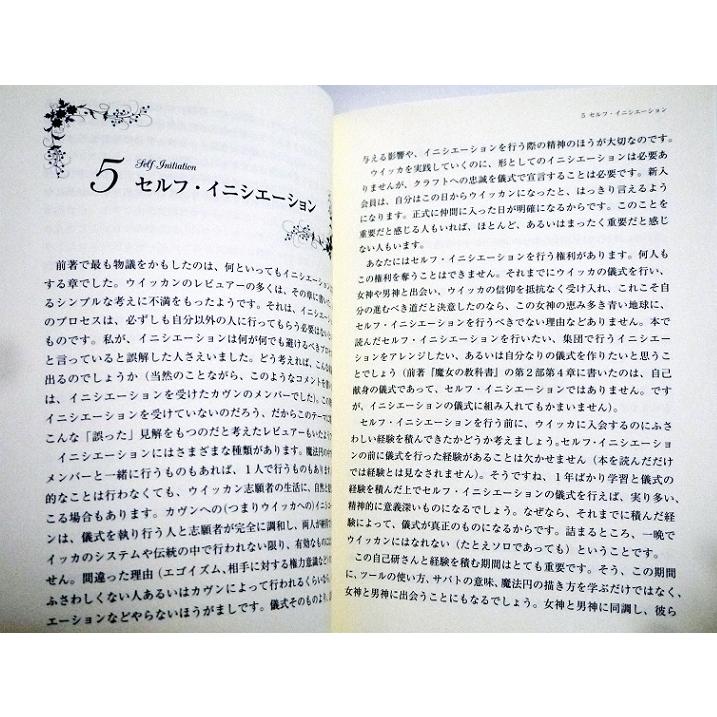 5
Self-Initiation
セルフ・イニシエーション
前著で最も物議をかもしたのは、何といってもイニシエーション
する章でした。ウイッカンのレビュアーの多くは、その章に書いた
るシンプルな考えに不満をもったようです。それは、イニシエーシ
のプロセスは、必ずしも自分以外の人に行ってもらう必要はない
ものです。私が、イニシエーションは何が何でも避けるべきプロ
と言っていると誤解した人さえいました。どう考えれば、こんな
出るのでしょうか(当然のことながら、このようなコメントを
は、イニシエーションを受けたカヴンのメンバーでした)。
イニシエーションを受けていないのだろう、だからこのテーマに
こんな「誤った」見解をもつのだと考えたレビュアーもいたよう
イニシエーションにはさまざまな種類があります。魔法円の中
メンバーと一緒に行うものもあれば、1人で行うものもあります
的なことは行わなくても、ウイッカン志願者の生活に、自然と
こる場合もあります。カヴンへの(つまりウイッカへの)イニシエ
ンは、儀式を執り行う人と志願者が完全に調和し、両人が
イッカのシステムや伝統の中で行われない限り、有効なものには
せん。間違った理由(エゴイズム、相手に対する権力意識など)で
ふさわしくない人あるいはカヴンによって行われるくらいなら、
エーションなどやらないほうがましです。儀式そのものより、
5 セルフ・イニシエーション
与える影響や、イニシエーションを行う際の精神のほうが大切なのです。
ウイッカを実践していくのに、形としてのイニシエーションは必要あ
りませんが、クラフトへの忠誠を儀式で宣言することは必要です。新入
会員は、自分はこの日からウイッカンになったと、はっきり言えるよう
になります。正式に仲間に入った日が明確になるからです。このことを
重要だと感じる人もいれば、ほとんど、あるいはまったく重要だと感じ
ない人もいます。
あなたにはセルフ・イニシエーションを行う権利があります。何人も
この権利を奪うことはできません。それまでにウイッカの儀式を行い、
女神や男神と出会い、ウイッカの信仰を抵抗なく受け入れ、これこそ自
分の進むべき道だと決意したのなら、この女神の恵み多き青い地球に、
セルフ・イニシエーションを行うべきでない理由などありません。本で
読んだセルフ・イニシエーションを行いたい、集団で行うイニシエー
ションをアレンジしたい、あるいは自分なりの儀式を作りたいと思うこ
とでしょう(前著『魔女の教科書』の第2部第4章に書いたのは、自己
献身の儀式であって、セルフ・イニシエーションではありません。です
が、イニシエーションの儀式に組み入れてもかまいません)。
セルフ・イニシエーションを行う前に、ウイッカに入会するのにふさ
わしい経験を積んできたかどうか考えましょう。セルフ・イニシエーショ
ンの前に儀式を行った経験があることは欠かせません(本を読んだだけ
では経験とは見なされません)。そうですね、1年ばかり学習と儀式の
経験を積んだ上でセルフ・イニシエーションの儀式を行えば、実り多い、
精神的に意義深いものになるでしょう。なぜなら、それまでに積んだ経
験によって、儀式が真正のものになるからです。詰まるところ、一晩で
ウイッカンにはなれない(たとえソロであっても)ということです。
この自己研さんと経験を積む期間はとても重要です。そう、この期間
に、ツールの使い方、サバトの意味、魔法円の描き方を学ぶだけではなく、
女神と男神に出会うことにもなるでしょう。女神と男神に同調し、彼ら